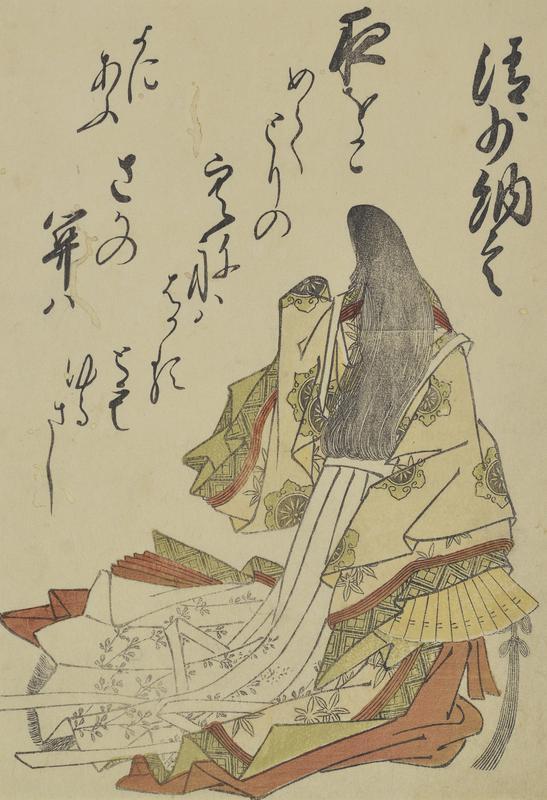 清少納言
夜をこ
めて
とりの
空ねハ
はかる
とも
よに
あふ
さかの
関ハ
ゆるさし